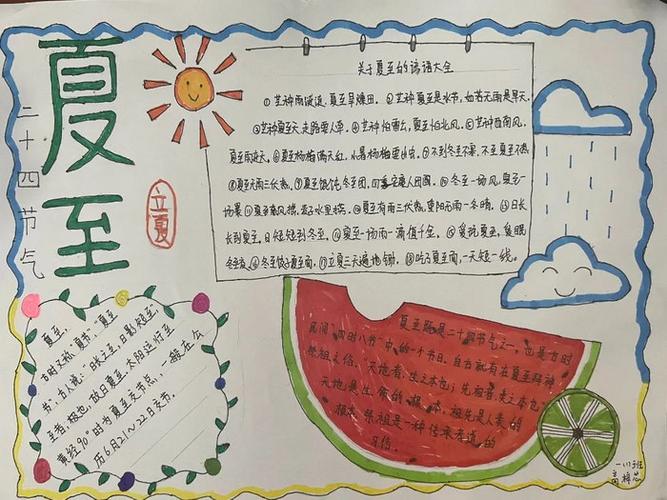 夏至
二十四节气
立夏
关于夏至的谚语大全
①芒种雨涟涟,夏至旱燥田。②芒种夏至是水节,如若无雨是旱天。
③芒种夏至天,走路要人牵。④芒种怕雷公,夏至怕北风。⑤芒种西南风,
夏至雨连天。⑥夏至杨梅满天红,小暑杨梅要出虫。⑦不到冬至不寒,不至夏至不热
⑧夏至无雨三伏热。⑨夏至馄饨冬至团,四季安康人团圆。⑩冬至一场风,夏至一
场暴⑪夏至东风摇,麦子水里捞。⑫夏至有雨三伏热,重阳无雨一冬晴。⑬日长
长到夏至,日短短到冬至。⑭夏至一场雨一滴值千金。⑮爱玩夏至,爱眠
冬至夜。⑯冬至饺子夏至面。⑰立夏三天遍地锄。⑱吃了夏至面,一天短一线。
夏至,
古时又称"夏节""夏至
节"。古人说:"日长之至,日影短至,
至者,极也,故曰夏至。太阳运行至
黄经90°时为夏至交节点,一般在公
历6月21~22日交节。
夏至既是二十四节气之一,也是古时
民间"四时八节"中的一个节日,自古就有在夏至拜神
祭祖之俗。"天地者,生之本也;先祖者,类之本也
天地是生命的根本,祖先是人类的
根本,祭祖是一种传承孝道的
习俗。
一(1)班
高梓芯